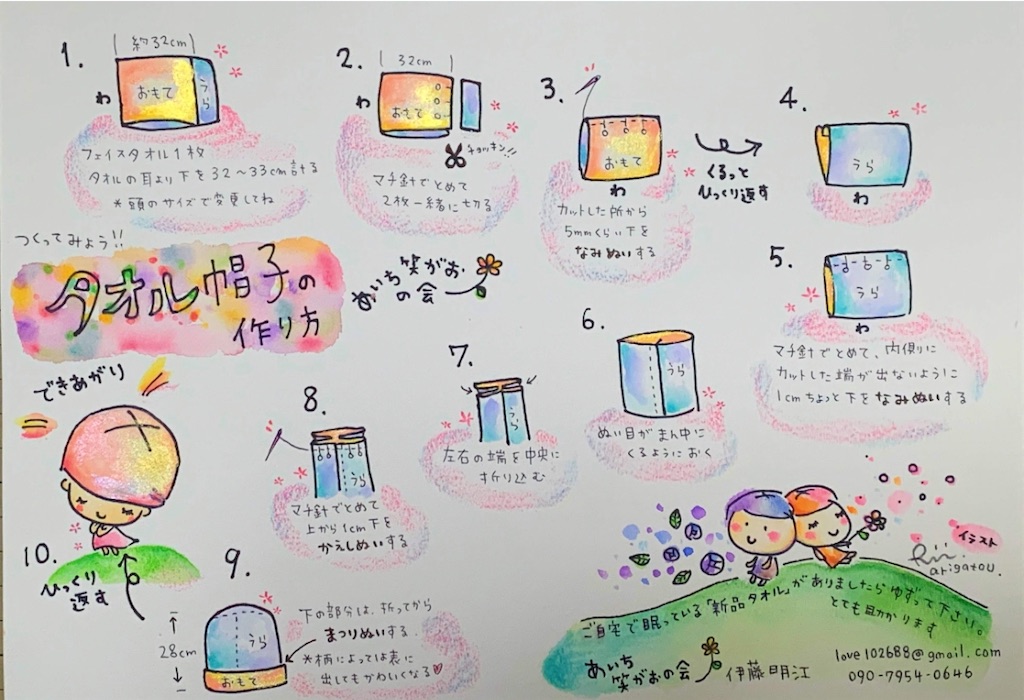 つくってみよう!!
タオル帽子の
作り方
あいち笑がお
の会
1.
約32cm
おもて
うら
わ
フェイスタオル1枚
タオルの耳より下を32〜33cm計る
*頭のサイズで変更してね
2.
32cm
おもて
わ
チョッキン!!
マチ針でとめて
2枚一緒に切る
3.
おもて
わ
カットした所から
5mmくらい下を
なみぬいする
くるっと
ひっくり返す
4.
うら
わ
5.
うら
わ
マチ針でとめて、内側に
カットした端が出ないように
1cmちょっと下をなみぬいする
6.
うら
ぬい目がまん中に
くるようにおく
7.
うら
左右の端を中央に
折り込む
8.
うら
マチ針でとめて
上から1cm下を
かえしぬいする
9.
28cm
うら
おもて
下の部分は、折ってから
まつりぬいする
*柄によっては表に
出してもかわいくなる♡
10.
ひっくり
返す
できあがり
イラスト
arigatou.
ご自宅で眠っている「新品タオル」がありましたらゆずって下さい。
とても助かります
あいち
笑がおの会
伊藤明江
love102688@gmail.com
090-7954-0646